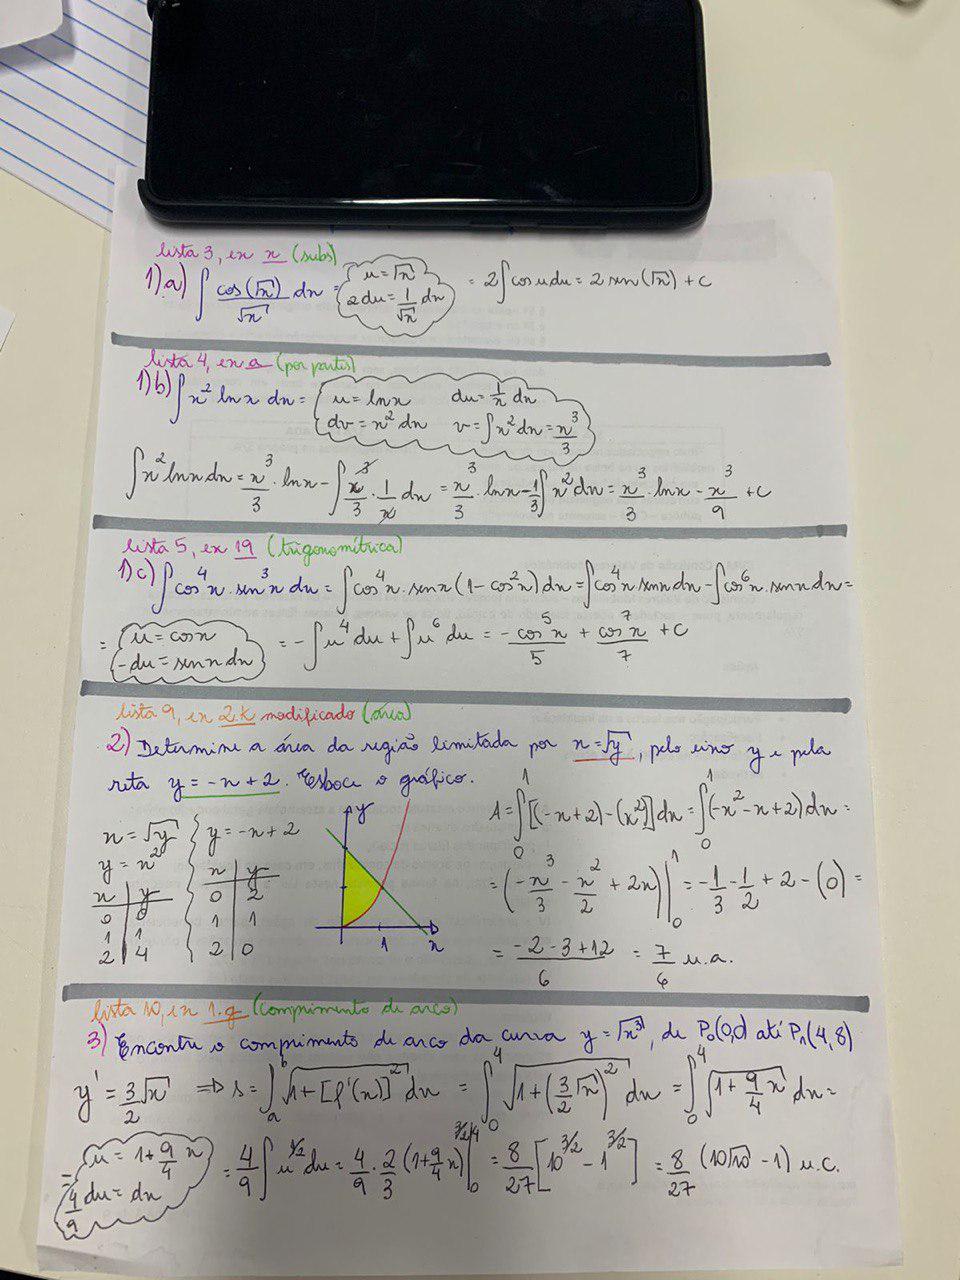 lista 3, ex x (subs)
1) a) ∫ cos(√x)/√x dx = u = √x 2du = 1/√x dx = 2∫cos u du = 2 sen(√x) + c
lista 4, ex a (por partes)
1) b) ∫x² ln x dx = u = ln x du = 1/x dx
dv = x² dx v = ∫x² dx = x³/3
∫x² ln x dx = x³/3 · ln x - ∫x³/3 · 1/x dx = x³/3 · ln x - 1/3 ∫x² dx = x³/3 · ln x - x³/9 + c
lista 5, ex 19 (trigonométrica)
1) c) ∫cos⁴x · sen³x dx = ∫cos⁴x · sen x (1 - cos²x) dx = ∫cos⁴x sen x dx - ∫cos⁶x · sen x dx =
= u = cos x -du = sen x dx = -∫u⁴ du + ∫u⁶ du = -cos⁵x/5 + cos⁷x/7 + c
lista 9, ex 2.k modificado (área)
2) Determine a área da região limitada por x = √y, pelo eixo y e pela
reta y = -x + 2. Esboce o gráfico.
x = √y y = -x + 2
y = x²
x y x y
0 0 0 2
1 1 1 1
2 4 2 0
y
1 x
A = ∫₀¹ [(-x+2) - (x²)] dx = ∫₀¹ (-x² - x + 2) dx =
= (-x³/3 - x²/2 + 2x) |₀¹ = -1/3 - 1/2 + 2 - (0) =
= (-2 - 3 + 12)/6 = 7/6 u.a.
lista 10, ex 1.g (comprimento de arco)
3) Encontre o comprimento de arco da curva y = √x³, de P₀(0,0) até P₁(4,8)
y' = 3/2 √x ⇒ s = ∫ₐᵇ √(1 + [f'(x)]²) dx = ∫₀⁴ √(1 + (3/2 √x)²) dx = ∫₀⁴ √(1 + 9/4 x) dx =
= u = 1 + 9/4 x 4/9 du = dx = 4/9 ∫u^(1/2) du = 4/9 · 2/3 (1 + 9/4 x)^(3/2) |₀⁴ = 8/27 [10^(3/2) - 1^(3/2)] = 8/27 (10√10 - 1) u.c.